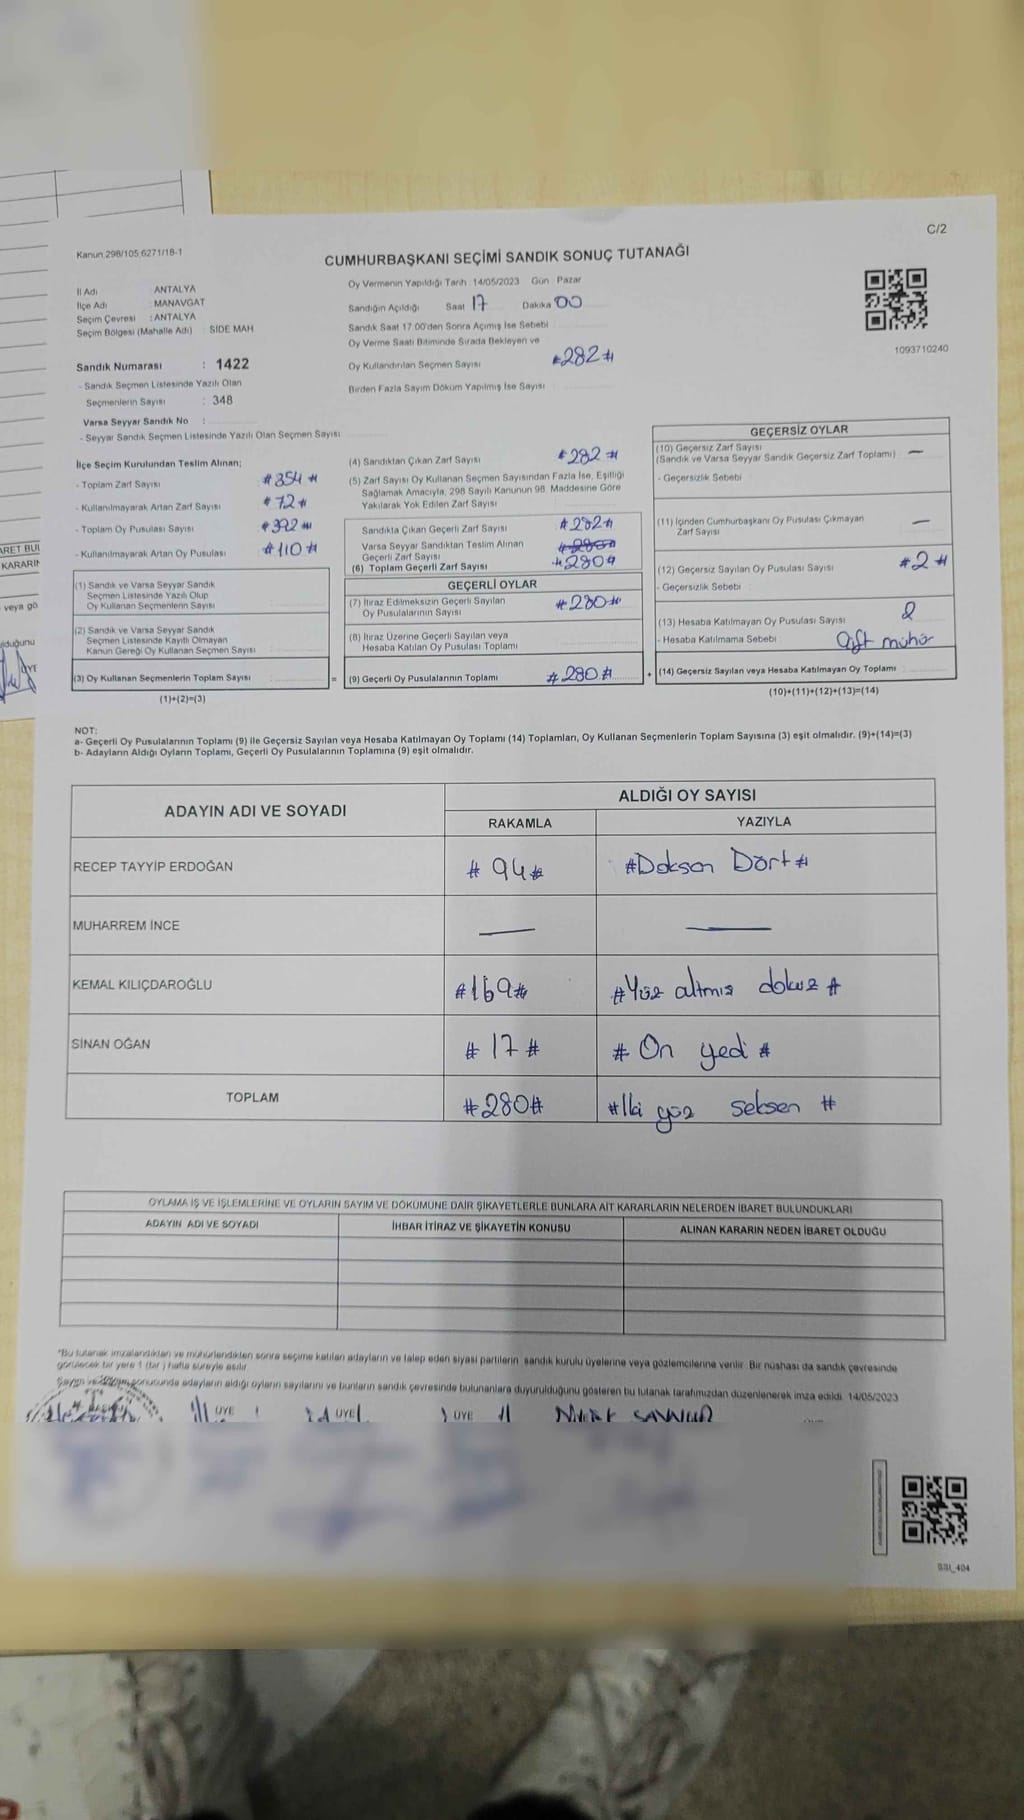 C/2
Kanun.298/105.6271/18-1
CUMHURBAŞKANI SEÇİMİ SANDIK SONUÇ TUTANAĞI
İl Adı : ANTALYA
İlçe Adı : MANAVGAT
Seçim Çevresi : ANTALYA
Seçim Bölgesi (Mahalle Adı) : SİDE MAH
Oy Vermenin Yapıldığı Tarih 14/05/2023 Gün Pazar
Sandığın Açıldığı Saat 17 Dakika 00
Sandık Saat 17.00'den Sonra Açımış İse Sebebi
Oy Verme Saati Bitiminde Sırada Bekleyen ve
Oy Kullandırılan Seçmen Sayısı #282#
Birden Fazla Sayım Döküm Yapılmış İse Sayısı
1093710240
Sandık Numarası : 1422
- Sandık Seçmen Listesinde Yazılı Olan
Seçmenlerin Sayısı : 348
Varsa Seyyar Sandık No :
- Seyyar Sandık Seçmen Listesinde Yazılı Olan Seçmen Sayısı
İlçe Seçim Kurulundan Teslim Alınan;
- Toplam Zarf Sayısı #354#
- Kullanılmayarak Artan Zarf Sayısı #72#
- Toplam Oy Pusulası Sayısı #392#
- Kullanılmayarak Artan Oy Pusulası #110#
(1) Sandık ve Varsa Seyyar Sandık
Seçmen Listesinde Yazılı Olup
Oy Kullanan Seçmenlerin Sayısı
(2) Sandık ve Varsa Seyyar Sandık
Seçmen Listesinde Kayıtlı Olmayan
Kanun Gereği Oy Kullanan Seçmen Sayısı
(3) Oy Kullanan Seçmenlerin Toplam Sayısı
(1)+(2)=(3)
(4) Sandıktan Çıkan Zarf Sayısı #282#
(5) Zarf Sayısı Oy Kullanan Seçmen Sayısından Fazla İse, Eşitliği
Sağlamak Amacıyla, 298 Sayılı Kanunun 98. Maddesine Göre
Yakılarak Yok Edilen Zarf Sayısı
Sandıkta Çıkan Geçerli Zarf Sayısı #282#
Varsa Seyyar Sandıktan Teslim Alınan
Geçerli Zarf Sayısı #280#
(6) Toplam Geçerli Zarf Sayısı #280#
GEÇERLİ OYLAR
(7) İtiraz Edilmeksizin Geçerli Sayılan
Oy Pusulalarının Sayısı #280#
(8) İtiraz Üzerine Geçerli Sayılan veya
Hesaba Katılan Oy Pusulası Toplamı
= (9) Geçerli Oy Pusulalarının Toplamı #280#
GEÇERSİZ OYLAR
(10) Geçersiz Zarf Sayısı
(Sandık ve Varsa Seyyar Sandık Geçersiz Zarf Toplamı) —
- Geçersizlik Sebebi
(11) İçinden Cumhurbaşkanı Oy Pusulası Çıkmayan
Zarf Sayısı —
(12) Geçersiz Sayılan Oy Pusulası Sayısı #2#
- Geçersizlik Sebebi
(13) Hesaba Katılmayan Oy Pusulası Sayısı 2
- Hesaba Katılmama Sebebi Çift mühür
+ (14) Geçersiz Sayılan veya Hesaba Katılmayan Oy Toplamı
(10)+(11)+(12)+(13)=(14)
NOT:
a- Geçerli Oy Pusulalarının Toplamı (9) ile Geçersiz Sayılan veya Hesaba Katılmayan Oy Toplamı (14) Toplamları, Oy Kullanan Seçmenlerin Toplam Sayısına (3) eşit olmalıdır. (9)+(14)=(3)
b- Adayların Aldığı Oyların Toplamı, Geçerli Oy Pusulalarının Toplamına (9) eşit olmalıdır.
ADAYIN ADI VE SOYADI ALDIĞI OY SAYISI
RAKAMLA YAZIYLA
RECEP TAYYİP ERDOĞAN #94# #Doksan Dört#
MUHARREM İNCE — —
KEMAL KILIÇDAROĞLU #169# #Yüz altmış dokuz#
SİNAN OĞAN #17# #On yedi#
TOPLAM #280# #İki yüz seksen#
OYLAMA İŞ VE İŞLEMLERİNE VE OYLARIN SAYIM VE DÖKÜMÜNE DAİR ŞİKAYETLERLE BUNLARA AİT KARARLARIN NELERDEN İBARET BULUNDUKLARI
ADAYIN ADI VE SOYADI İHBAR İTİRAZ VE ŞİKAYETİN KONUSU ALINAN KARARIN NEDEN İBARET OLDUĞU
*Bu tutanak imzalandıktan ve mühürlendikten sonra seçime katılan adayların ve talep eden siyasi partilerin sandık kurulu üyelerine veya gözlemcilerine verilir. Bir nüshası da sandık çevresinde
görülecek bir yere 1 (bir) hafta süreyle asılır.
Sayım ve döküm sonucunda adayların aldığı oyların sayılarını ve bunların sandık çevresinde bulunanlara duyurulduğunu gösteren bu tutanak tarafımızdan düzenlenerek imza edildi. 14/05/2023
ÜYE ÜYE ÜYE
404